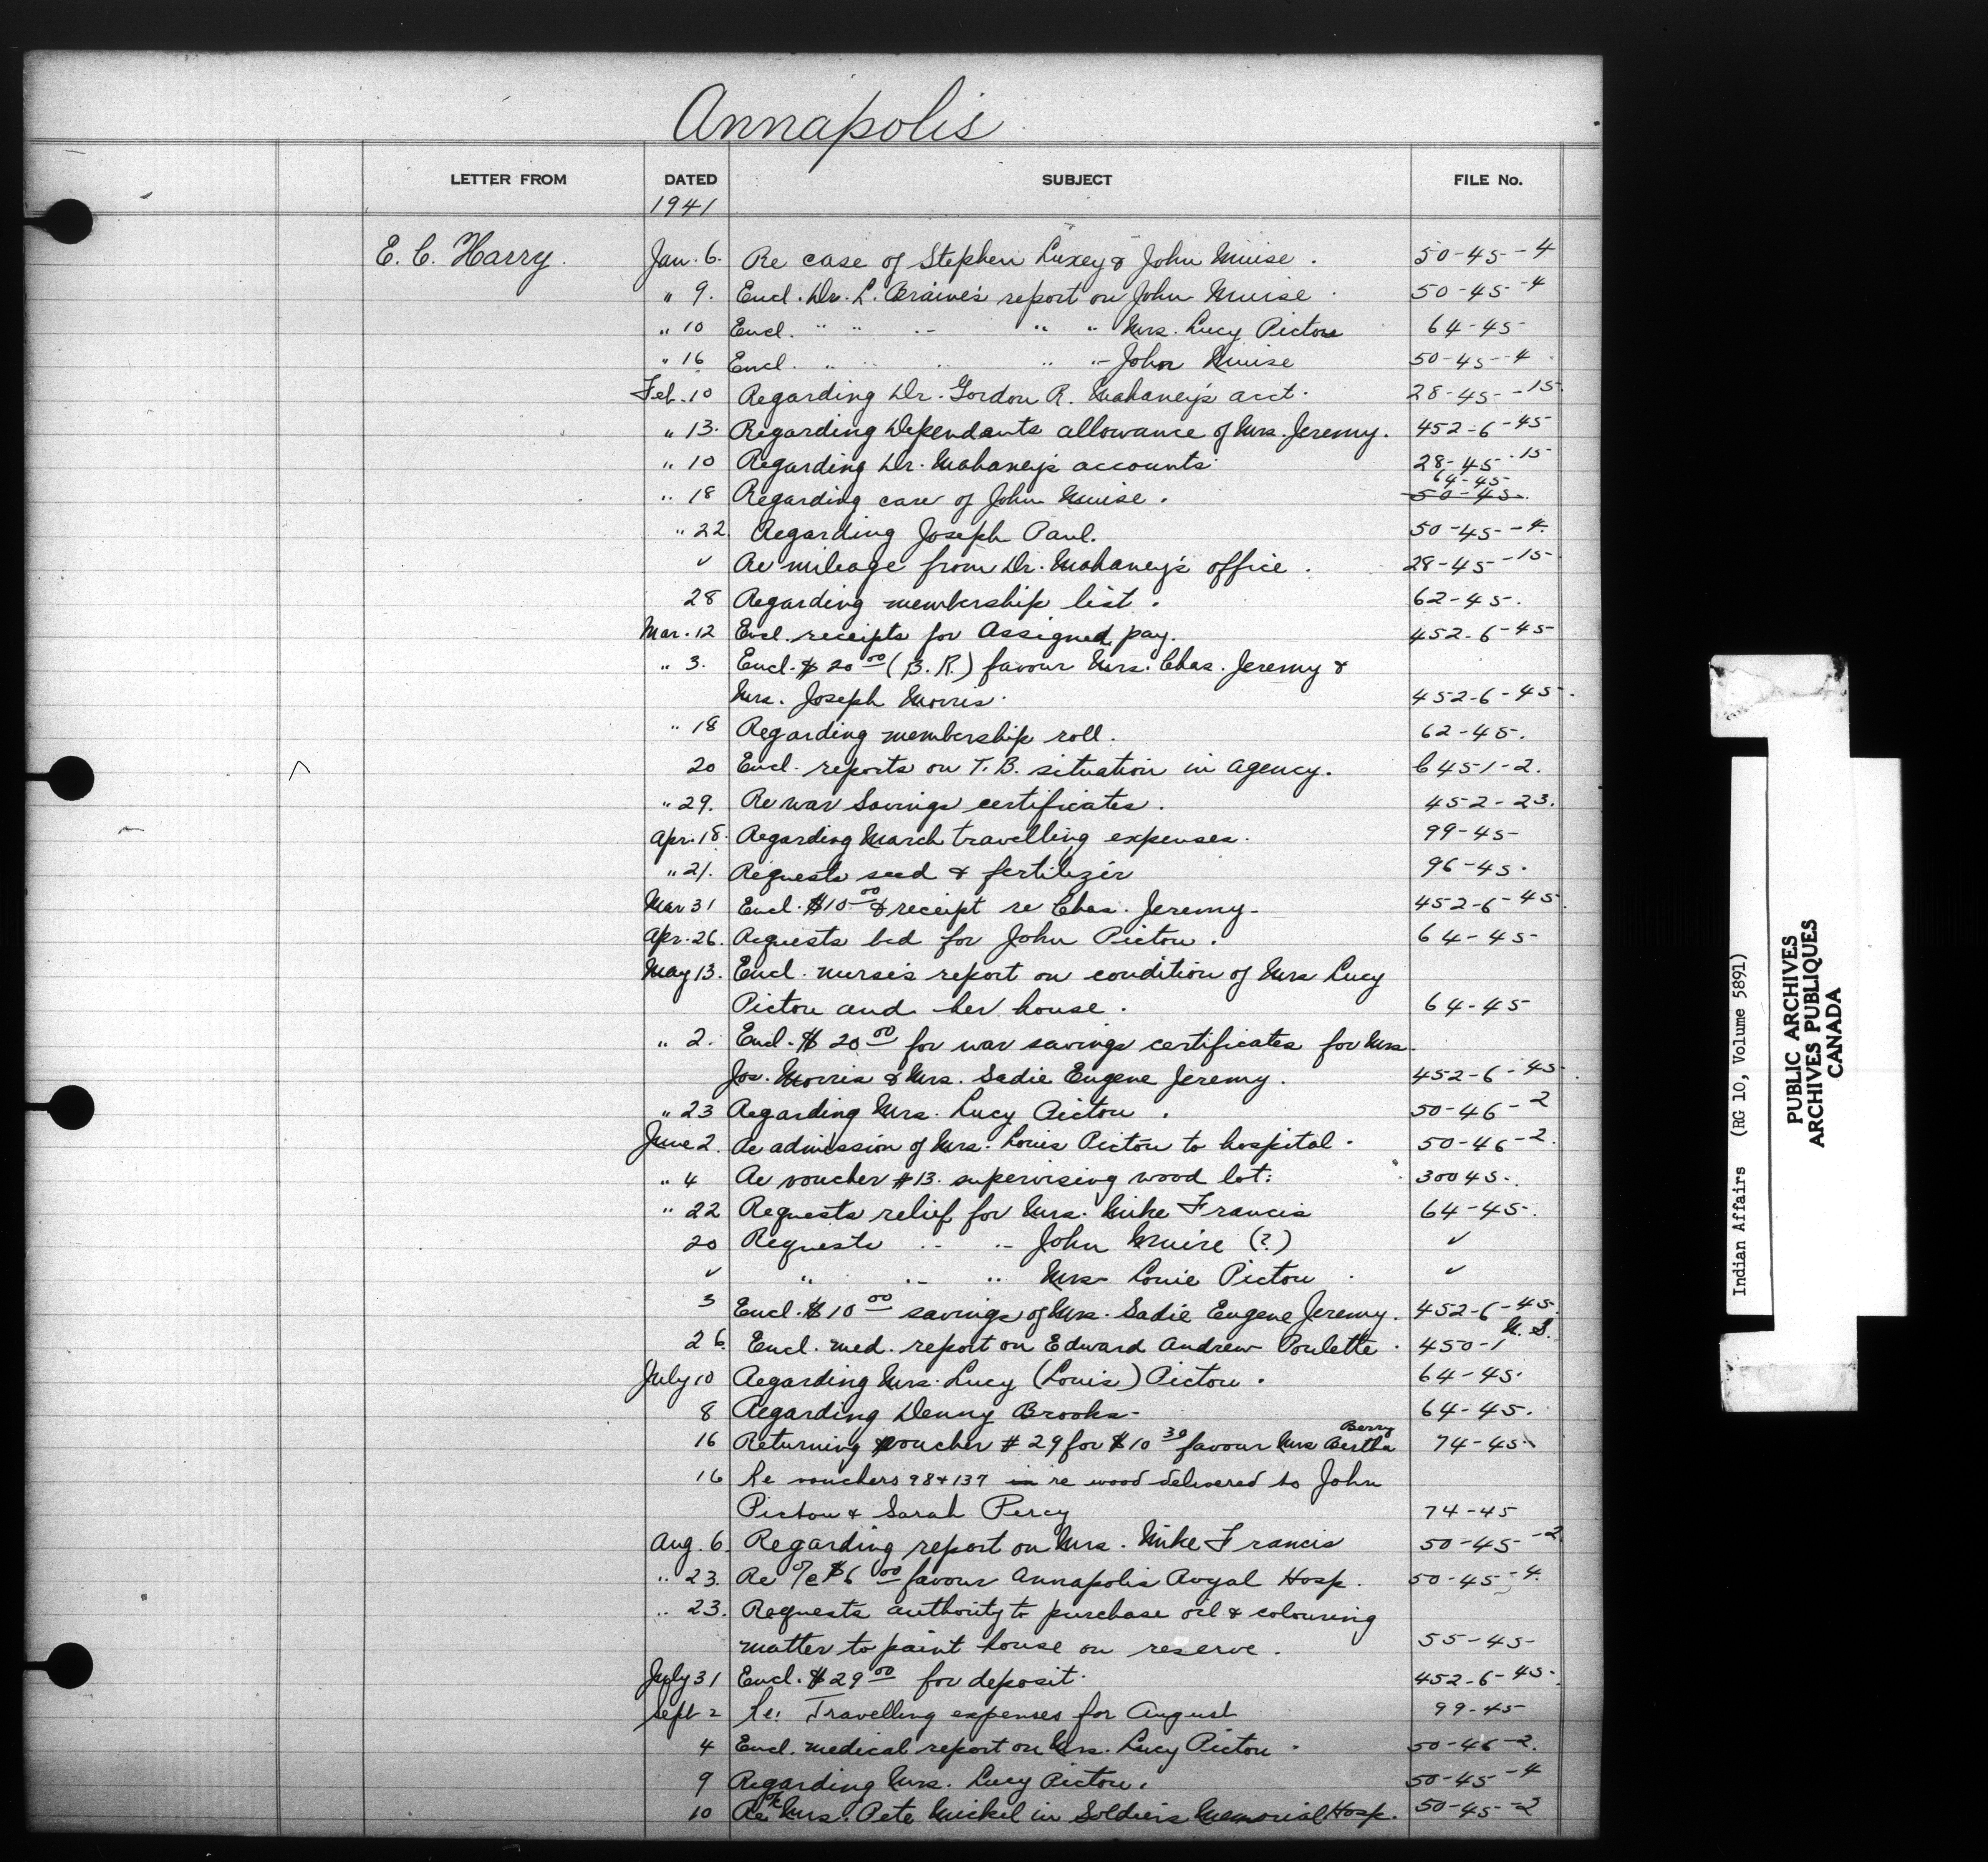 Annapolis
LETTER FROM DATED SUBJECT FILE No.
1941
E. C. Harry. Jan. 6. Re case of Stephen Luxey & John Muise. 50-45-4
" 9. Encl. Dr. L. Braine's report on John Muise. 50-45-4
" 10 Encl. " " " " " Mrs. Lucy Pictou 64-45
" 16 Encl. " " " " " John Muise 50-45-4
Feb. 10 Regarding Dr. Gordon R. Mahaney's acct. 28-45-15.
" 13. Regarding Dependants allowance of Mrs. Jeremy. 452-6-45
" 10 Regarding Dr. Mahaney's accounts. 28-45-15
64-45
" 18 Regarding care of John Muise. 50-45.
" 22 Regarding Joseph Paul. 50-45-4.
✓ Re mileage from Dr. Mahaney's office. 28-45-15
28 Regarding membership list. 62-45.
Mar. 12 Encl. receipts for Assigned pay. 452-6-45
" 3. Encl. $20 00 (B. R.) favour Mrs. Chas. Jeremy &
Mrs. Joseph Morris. 452-6-45.
" 18 Regarding membership roll. 62-45.
20 Encl. reports on T.B. situation in agency. 6451-2.
" 29. Re war Savings certificates. 452-23.
Apr. 18. Regarding March travelling expenses. 99-45
" 21. Requests seed & fertilizer 96-45.
Mar 31 Encl. $10 00 & receipt re Chas. Jeremy. 452-6-45.
Apr. 26. Requests bed for John Pictou. 64-45
May 13. Encl. nurse's report on condition of Mrs Lucy
Pictou and her house. 64-45
" 2. Encl. $20 00 for war savings certificates for Mrs.
Jos. Morris & Mrs. Sadie Eugene Jeremy. 452-6-45.
" 23 Regarding Mrs. Lucy Pictou. 50-46-2
June 2. Re admission of Mrs. Louis Pictou to hospital. 50-46-2.
" 4 Re voucher #13. supervising wood lot. 30045.
" 22 Requests relief for Mrs. Mike Francis 64-45.
20 Requests " " John Muise (?) ✓
✓ " " " Mrs Louie Pictou. ✓
3 Encl. $10 00 savings of Mrs. Sadie Eugene Jeremy. 452-6-45.
N. S.
26. Encl. med. report on Edward Andrew Poulette. 450-1
July 10 Regarding Mrs. Lucy (Louis) Pictou. 64-45.
8 Regarding Denny Brooks. 64-45.
Berry
16 Returning voucher #29 for $10 30 favour Mrs Bertha 74-45
16 Re vouchers 98 & 137 in re wood delivered to John
Pictou & Sarah Percy 74-45
Aug. 6. Regarding report on Mrs. Mike Francis 50-45-2
" 23. Re o/c $6 00 favour Annapolis Royal Hosp. 50-45-4.
" 23. Requests authority to purchase oil & colouring
matter to paint house on reserve. 55-45
July 31 Encl. $29 00 for deposit. 452-6-45.
Sept 2 Re: Travelling expenses for August 99-45
4 Encl. medical report on Mrs. Lucy Pictou. 50-46-2.
9 Regarding Mrs. Lucy Pictou. 50-45-4
10 Re Mrs. Pete Michel in Soldiers Memorial Hosp. 50-45-2
Indian Affairs (RG 10, Volume 5891)
PUBLIC ARCHIVES
ARCHIVES PUBLIQUES
CANADA